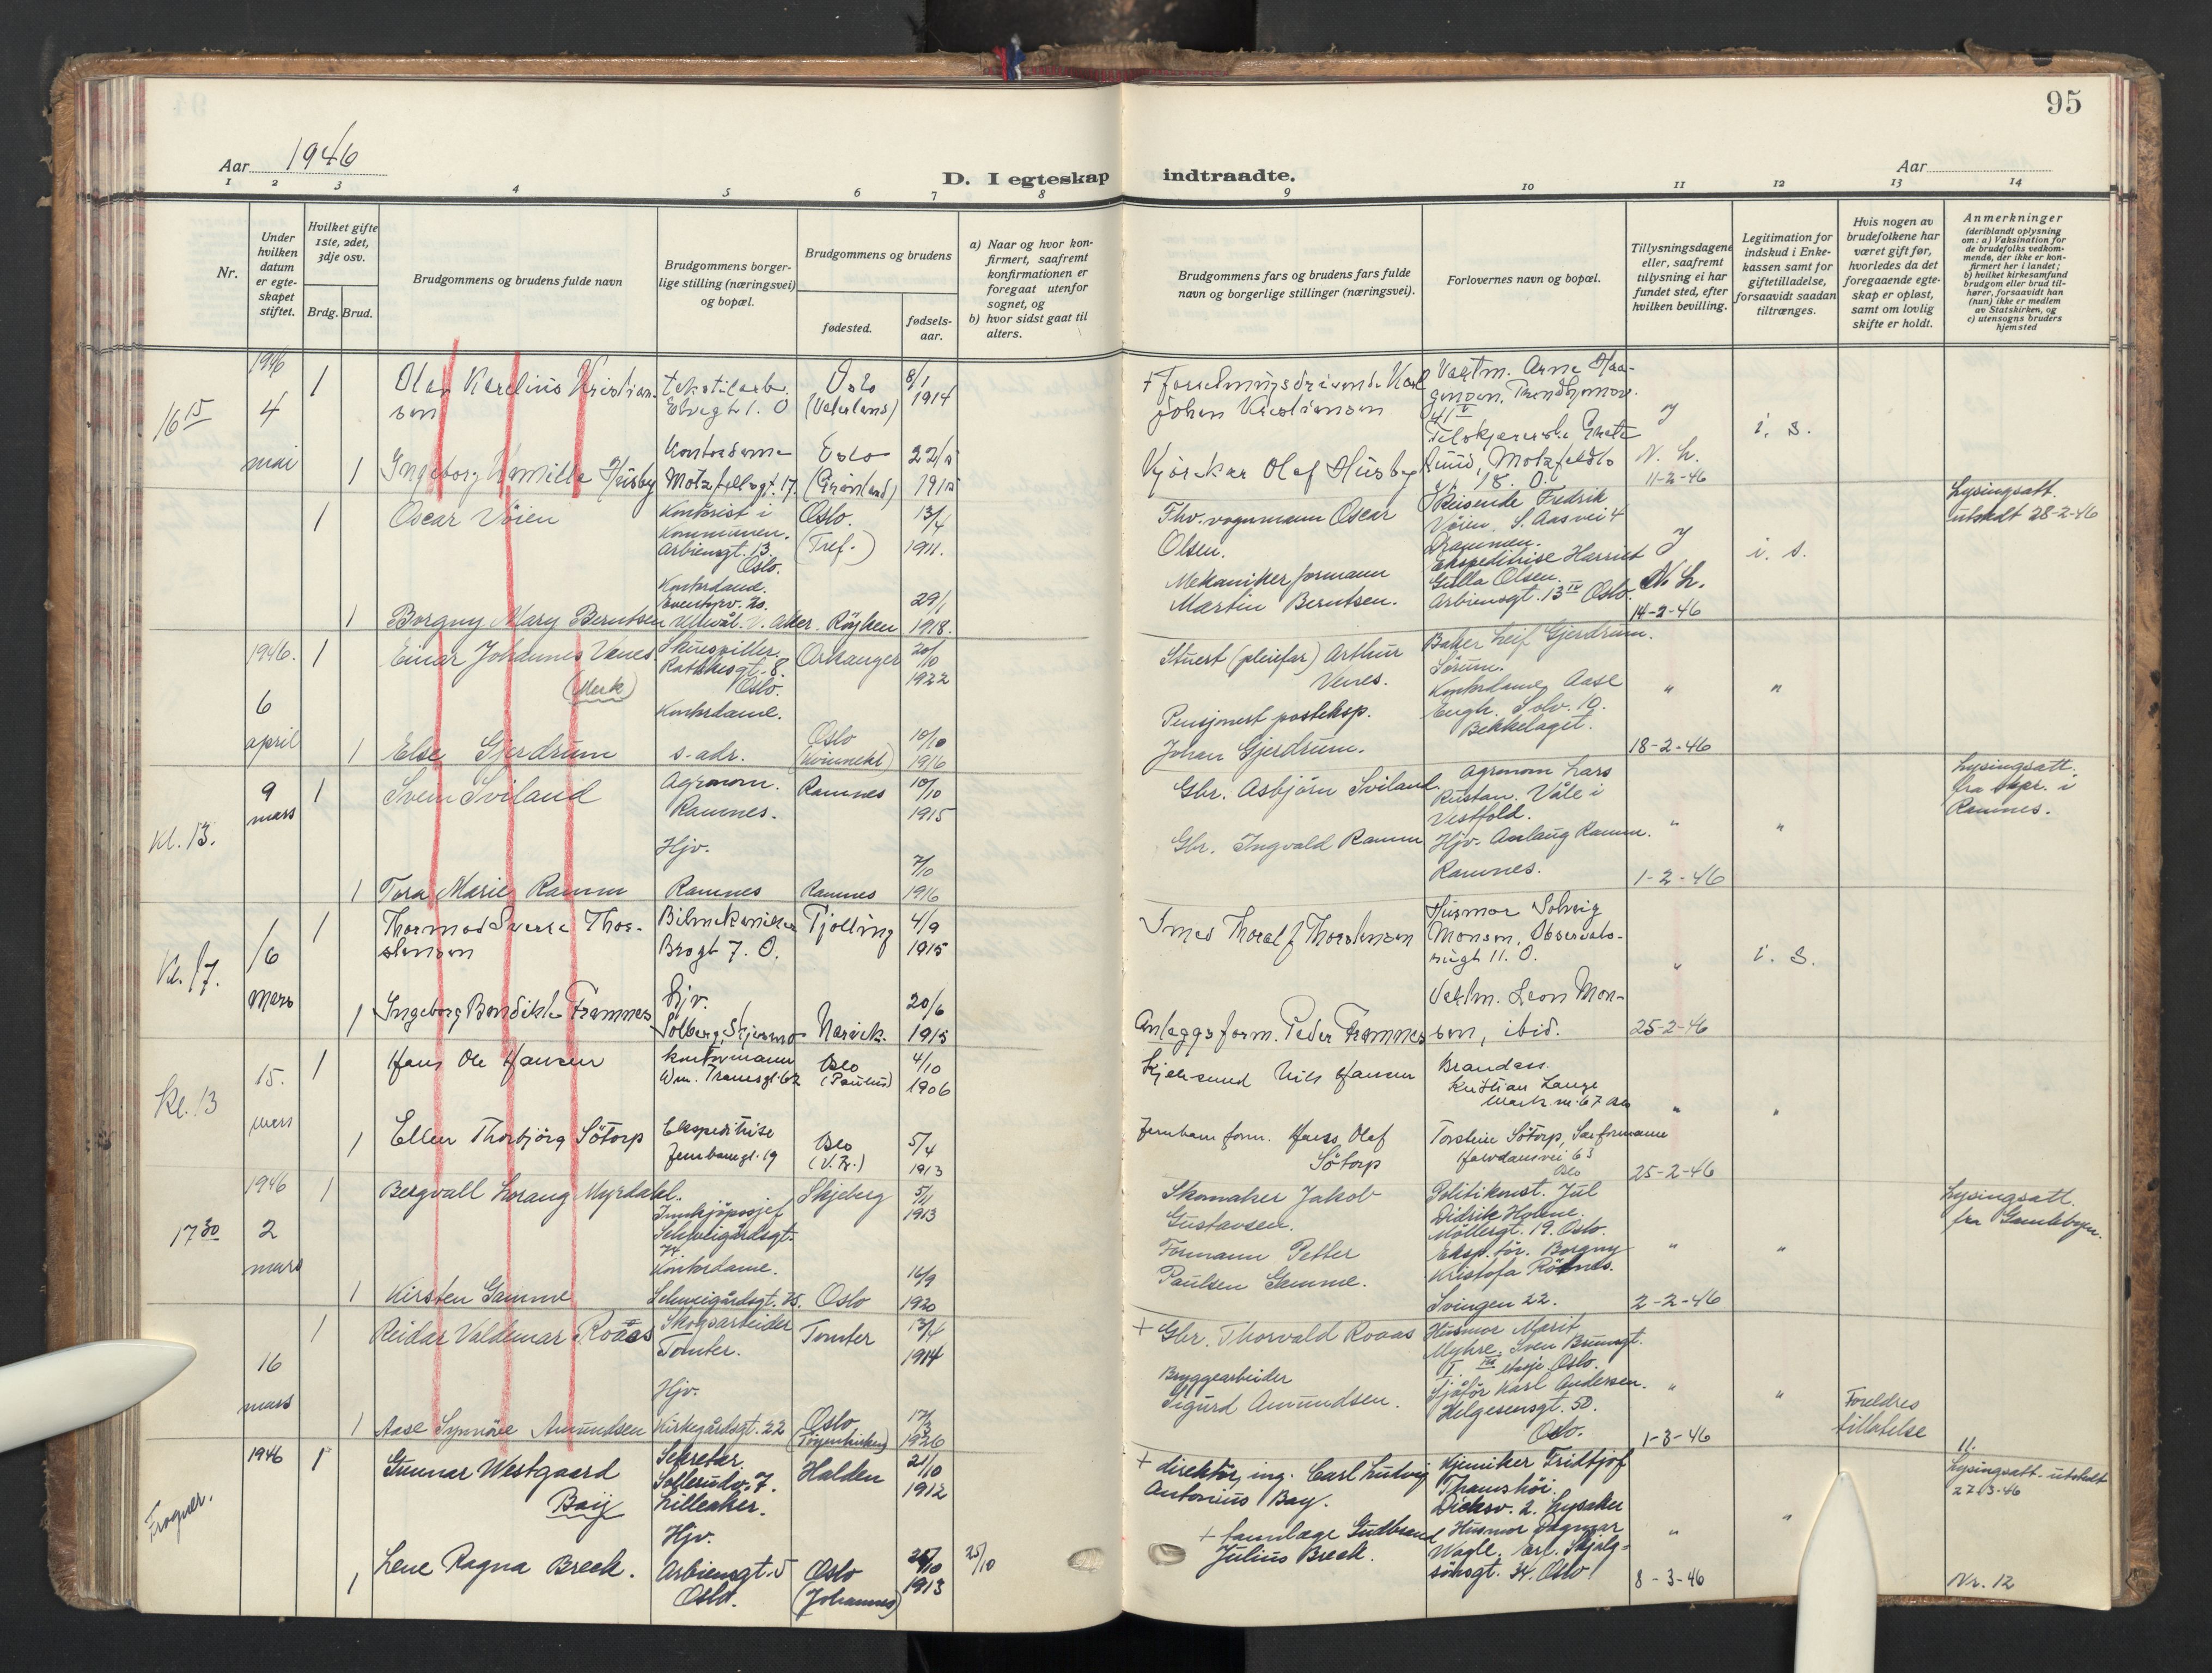 95
Aar 1946
D. I egteskap indtraadte.
Aar
1 2 3 4 5 6 7 8 9 10 11 12 13 14
Nr.
Under hvilken datum er egteskapet stiftet.
Hvilket gifte 1ste, 2det, 3dje osv.
Brdg. Brud.
Brudgommens og brudens fulde navn
Brudgommens borgerlige stilling (næringsvei) og bopæl.
Brudgommens og brudens
fødested.
fødselsaar.
a) Naar og hvor konfirmert, saafremt konfirmationen er foregaat utenfor sognet, og
b) hvor sidst gaat til alters.
Brudgommens fars og brudens fars fulde navn og borgerlige stillinger (næringsvei).
Forlovernes navn og bopæl.
Tillysningsdagene eller, saafremt tillysning ei har fundet sted, efter hvilken bevilling.
Legitimation for indskud i Enkekassen samt for giftetilladelse, forsaavidt saadan tiltrænges.
Hvis nogen av brudefolkene har været gift før, hvorledes da det foregaaende egteskap er opløst, samt om lovlig skifte er holdt.
Anmerkninger
(deriblandt oplysning om: a) Vaksination for de brudefolks vedkommende, der ikke er konfirmert her i landet; b) hvilket kirkesamfund brudgom eller brud tilhører, forsaavidt han (hun) ikke er medlem av Statskirken, og c) utensogns bruders hjemsted
16 15
1946
4
mai
1
Olaf Karelius Kristiansen
tekstilarb.
Elvegt 1. O
Oslo
(Vaterland)
8/1
1914
+ forretningsdrivende Karl
Johan Kristiansen
Vaktm. Arne Haagensen, Trondhjemsv.
41 V
i. s.
1
Ingeborg Kamilla Husby
Kontordame
Motzfeltsgt. 17.
Oslo
(Grønland)
Kjørekar Olaf Husby
Motzfeldts
18. O.
N. h.
11-2-46
1
Oscar Vøien
Kontorist i
Kommunen.
Arbiensgt. 13.
Oslo.
Oslo.
(Tref.)
13/4
1911.
Fhv. vognmann Oscar
Olsen.
Reisende Fredrik
Vøien. S. Aasvei 4
Drammen.
i. s.
Lysingsatt.
utstedt 28-2-46
1
Borgny Mary Berntsen
Kontordame.
Eventyrv. 20.
Ullevål. V. Aker.
Røyken
29/1
1918.
Mekaniker formann
Martin Berntsen.
Ekspeditrise Harriet
Gulla Olsen.
Arbiensgt. 13 IV Oslo.
N. h.
14-2-46
1946.
6
april
1
Einar Johannes Venes
(Merk)
Rathkesgt. 8.
Oslo.
Arkanger
20/10
1922
Stuert (pleiefar) Arthur
Venes.
Baker Leif Gjerdrum.
Sørum.
"
"
1
Else Gjerdrum
Kontordame.
s. adr.
Oslo
10/10
1916
Pensjonert posteksp.
Johan Gjerdrum.
Kontordame Aase
Engh. Solv. 10.
Bekkelaget.
18-2-46
Kl. 13.
9
mars
1
Svein Sviland
Agronom.
Ramnes.
Ramnes
10/10
1915
Gbr. Asbjørn Sviland.
Agronom Lars
Rustan. Våle i
Vestfold.
"
"
Lysingsatt.
fra skpr. i
Ramnes.
1
Tora Marie Ramm
Hjv.
Ramnes
Ramnes
7/10
1916
Gbr. Ingvald Ramm
Hjv. Aslaug Ramm.
Ramnes.
1-2-46
Kl. 17.
16
Mars
1
Thormod Sverre Thorstensen
Bilmekaniker
Brogt 7. O.
Tjølling
4/9
1915
Thoralf Thorstensen
Husmor Solveig
Monsen, Observatoriegt 11. O.
"
i. s.
1
Ingeborg Bendikte Framnes
Hjv.
Solberg, Skjersmo
Narvik.
20/6
1915
Anleggsform. Peder Framnes
Vaktm. Leon Monsen, ibid.
25-2-46
kl. 13
15.
mars
1
Hans Ole Hansen
Kontormann
Wm. Tranesgt. 62
Oslo
(Paulus)
4/10
1906
Nils Hansen
Brandass.
Kristian Lange
Mark. vn. 67 Oslo
"
"
1
Ellen Thorbjørg Søtorp
Ekspeditrise
Jernbanegt. 19
Oslo
5/4
1913
Jernbaneform. Hans Olaf
Søtorp
Torstein Søtorp,
63
Oslo
25-2-46
17 30
1946
2
mars
1
Bergvall Lorang Myrdahl.
Innkjøpssjef
Schweigårdsgt.
74
Skjeberg
5/11
1913
Skomaker Jakob
Gustavsen.
Politikonst. Jul
Didrik Holene.
Møllergt. 19. Oslo.
"
"
Lysingsatt.
fra Gamlebyen.
1
Kirsten Gamme
Kontordame.
Schweigårdsgt. 75.
Oslo
16/9
1920
Formann Petter
Paulsen Gamme.
Eksp. tør. Borgny
Kristofa Røtnes.
Svingen 22.
2-2-46
16
mars
1
Reidar Valdemar Roaas
Skogsarbeider
Tomter.
Tomter
13/4
1914
+ Gbr. Thorvald Roaas
Husmor Marit
Myhre. Sven Bruunsgt.
1. III etasje Oslo.
"
"
1
Aase Synnøve Amundsen
Hjv.
Kirkegårdsgt. 22
Oslo
(Tøyenkirken)
1926
Bryggearbeider
Sigurd Amundsen.
Sjåfør Karl Andersen.
Helgesensgt. 50.
Oslo.
1-3-46
Foreldres
tillatelse
Frogner.
1946
1
Gunnar Westgaard
Baÿ
Sekretær.
Sollerudv. 7.
Lilleaker.
Halden
21/10
1912
+ direktør, ing. Carl Ludvig
Antonius Bay.
Kjemiker Fridtjof
Thamshøi.
Dicksv. 2. Lysaker
"
"
11.
Lysingsatt. utstedt
27/3-46
1
Lene Ragna Breek.
Hjv.
Arbiensgt. 5
Oslo.
Oslo
(Johannes)
1913
25/10
+ tannlæge Gudbrand
Julius Breek.
Husmor Dagmar
Wagle. Erl. Skjalgsønsgt. 34. Oslo
8-3-46
Nr. 12